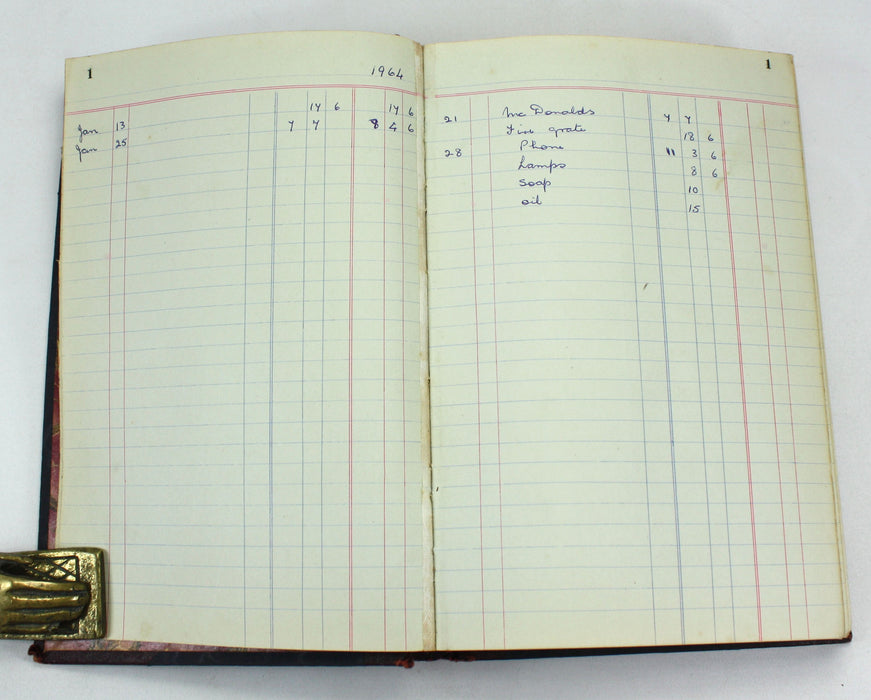 1
1964
Jan 13 17 6 17 6
Jan 25 7 7 8 4 6
1
21 Mc Donalds 7 7
Fire grate 18 6
28 Phone 11 3 6
Lamps 8 6
Soap 10
oil 15